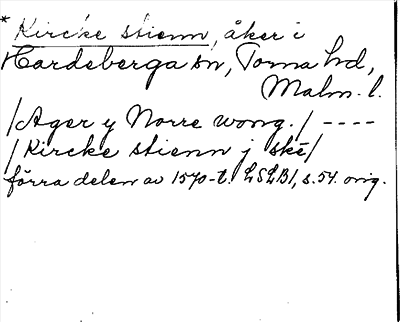 * Kircke stienn, åker i
Hardeberga sn, Torna hd,
Malm. l.
/Ager y Norre wong./ ----
/Kircke stienn j skē/
förra delen av 1570-t. LSLB1, s. 54. orig.